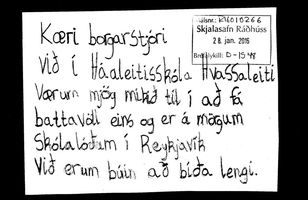 Kæri borgarstjóri
Við í Háaleitisskóla Hvassaleiti
Værum mjög mikið til í að fá
battavöll eins og er á mörgum
Skólalóðum í Reykjavík
Við erum búin að bíða lengi.
Skjalasafn Ráðhúss
28. jan. 2016